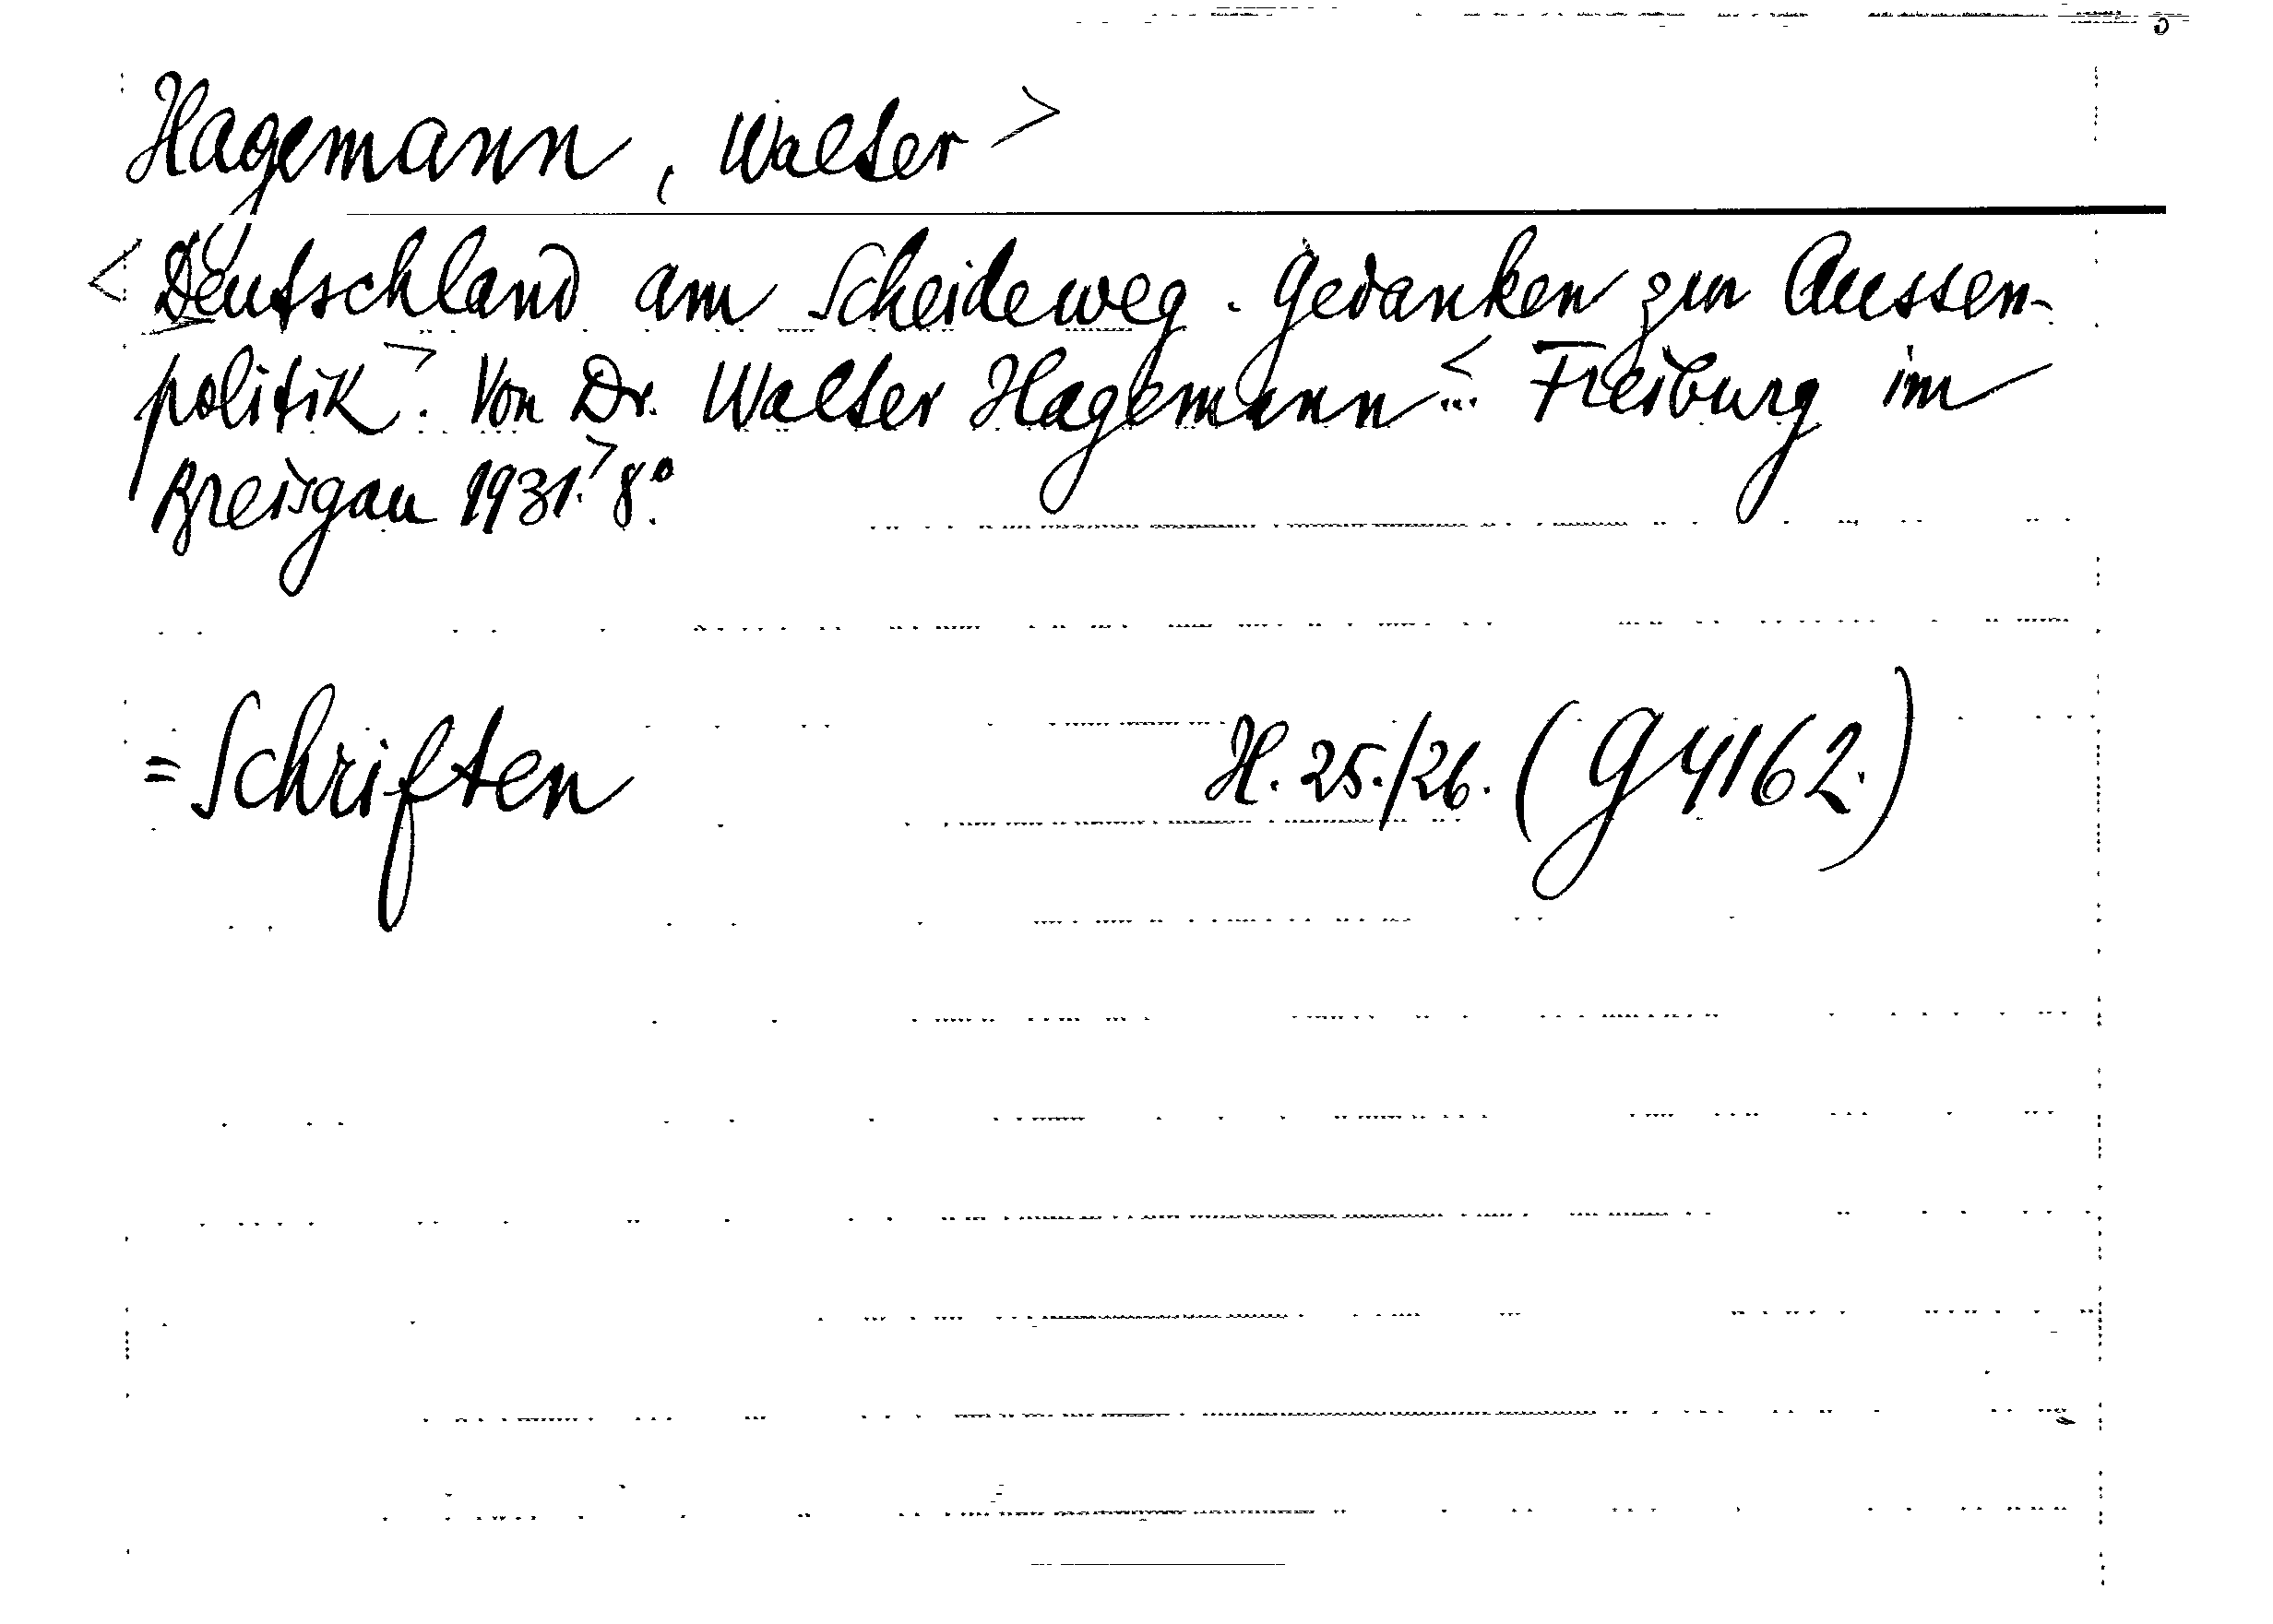 Hagemann, Walter >
< Deutschland am Scheideweg. Gedanken zur Aussen-
politik >. Von Dr. Walter Hagemann <... Freiburg im
Breisgau 1931. > 8°.
= Schriften H. 25./26. (G 4162.)